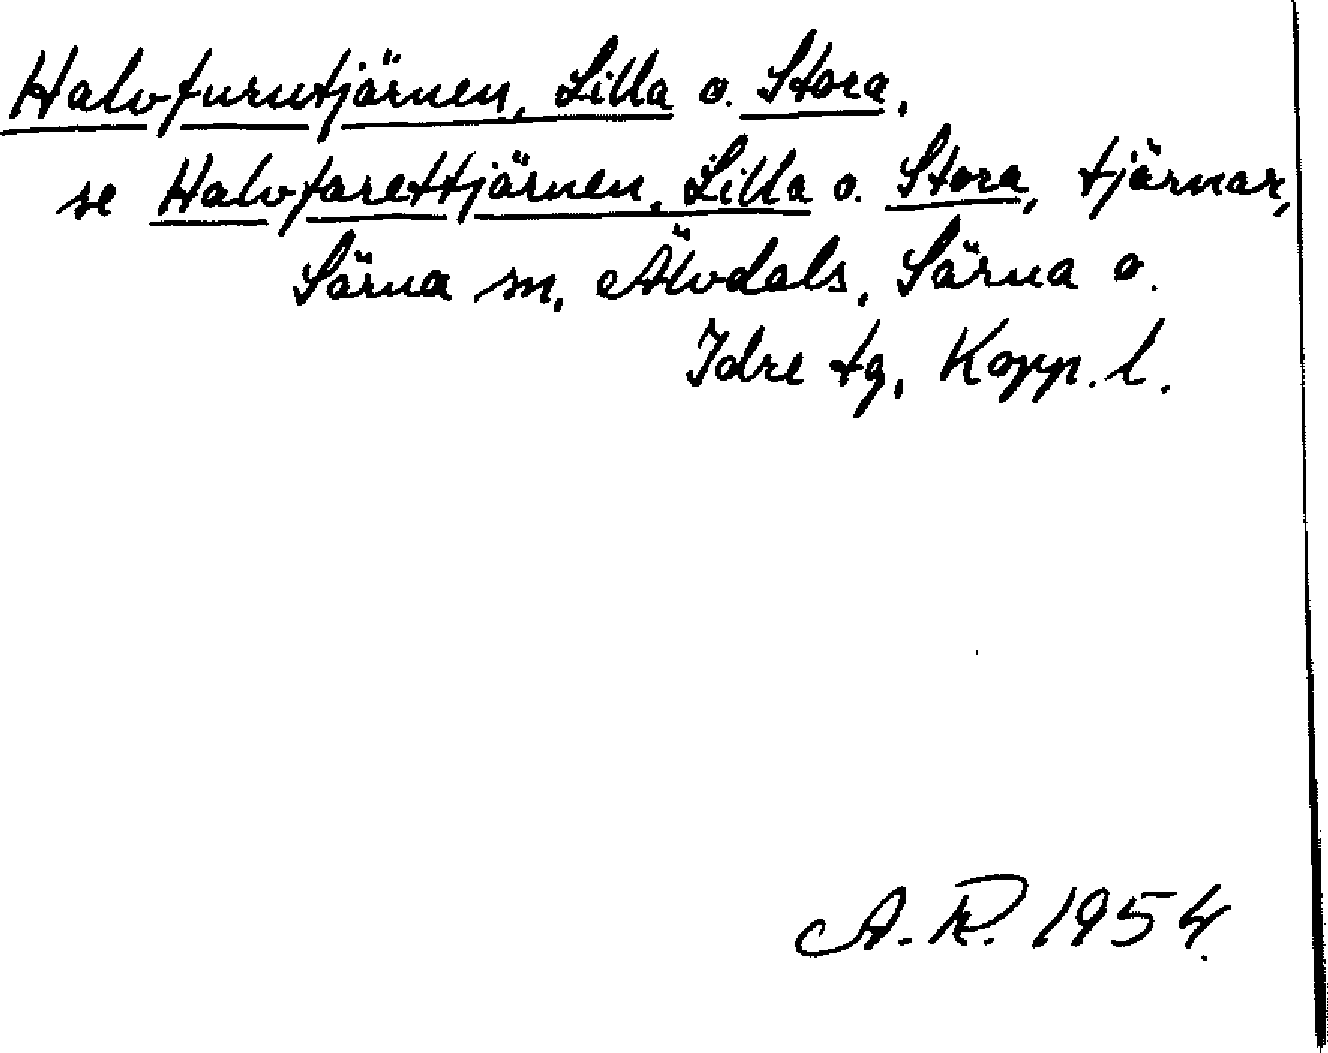 Halvfurutjärnen, Lilla o. Stora,
se Halvfarettjärnen, Lilla o. Stora, tjärnar,
Särna sn, Älvdals, Särna o.
Idre tg, Kopp. l.
A. R. 1954.